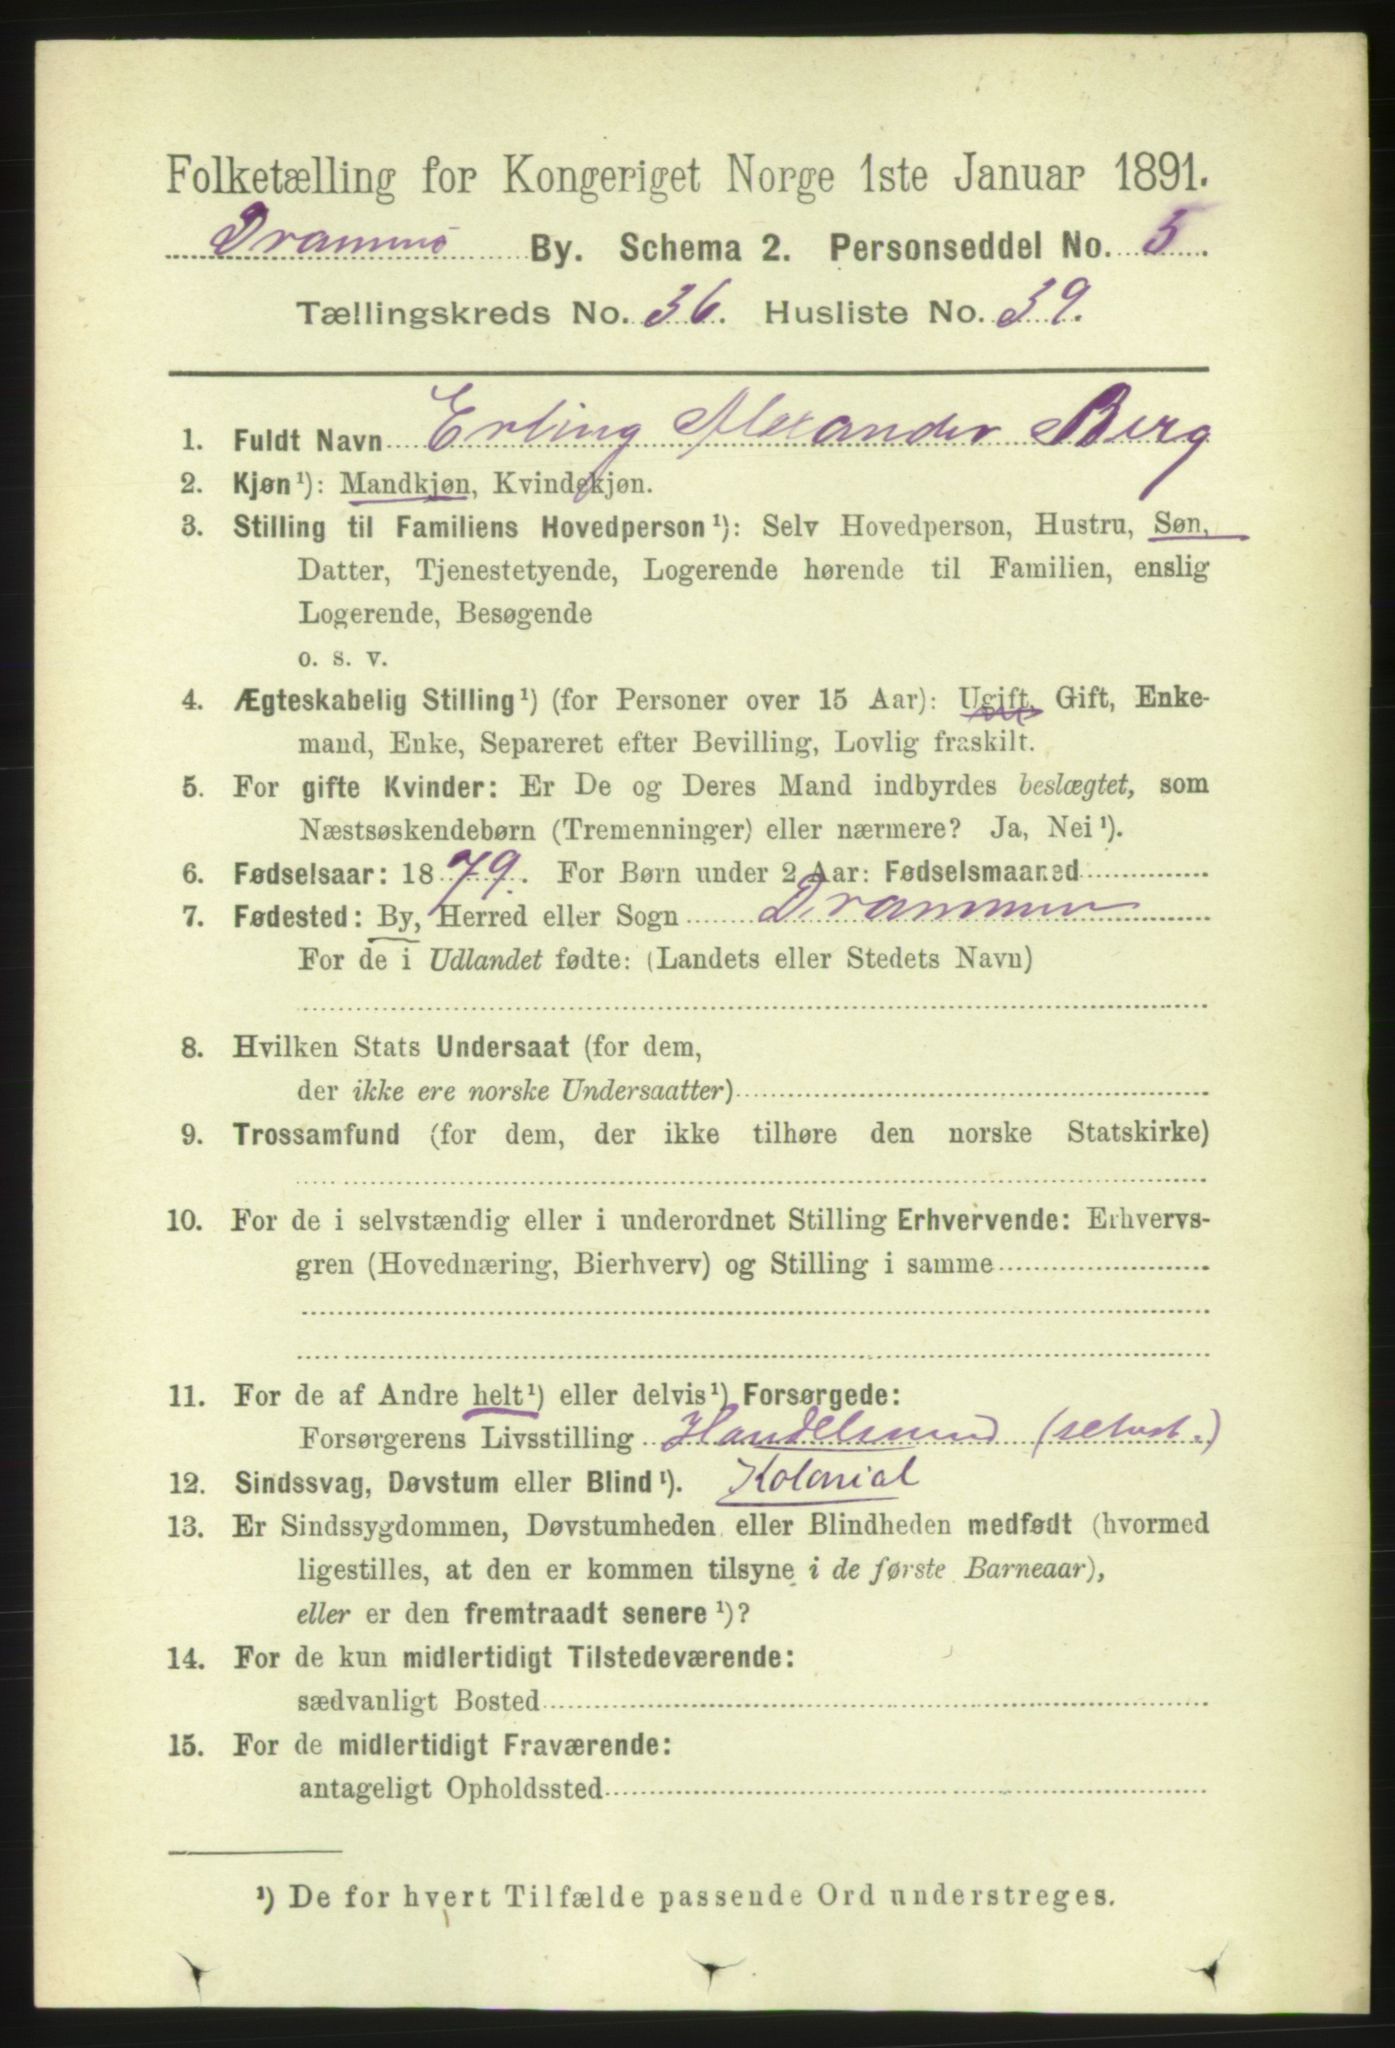 Folketælling for Kongeriget Norge 1ste Januar 1891.
Drammens By. Schema 2. Personseddel No. 5.
Tællingskreds No. 36. Husliste No. 39.
1. Fuldt Navn Erling Alexander Berg
2. Kjøn¹): Mandkjøn, Kvindekjøn.
3. Stilling til Familiens Hovedperson¹): Selv Hovedperson, Hustru, Søn,
Datter, Tjenestetyende, Logerende hørende til Familien, enslig
Logerende, Besøgende
o. s. v.
4. Ægteskabelig Stilling¹) (for Personer over 15 Aar): Ugift, Gift, Enke-
mand, Enke, Separeret efter Bevilling, Lovlig fraskilt.
5. For gifte Kvinder: Er De og Deres Mand indbyrdes beslægtet, som
Næstsøskendebørn (Tremenninger) eller nærmere? Ja, Nei¹).
6. Fødselsaar: 1879. For Børn under 2 Aar: Fødselsmaaned
7. Fødested: By, Herred eller Sogn Drammen
For de i Udlandet fødte: (Landets eller Stedets Navn)
8. Hvilken Stats Undersaat (for dem,
der ikke ere norske Undersaatter)
9. Trossamfund (for dem, der ikke tilhøre den norske Statskirke)
10. For de i selvstændig eller i underordnet Stilling Erhvervende: Erhvervs-
gren (Hovednæring, Bierhverv) og Stilling i samme
11. For de af Andre helt¹) eller delvis¹) Forsørgede:
Forsørgerens Livsstilling Handelsmand (selvst.)
12. Sindssvag, Døvstum eller Blind¹). Kolonial
13. Er Sindssygdommen, Døvstumheden eller Blindheden medfødt (hvormed
ligestilles, at den er kommen tilsyne i de første Barneaar),
eller er den fremtraadt senere¹)?
14. For de kun midlertidigt Tilstedeværende:
sædvanligt Bosted
15. For de midlertidigt Fraværende:
antageligt Opholdssted
¹) De for hvert Tilfælde passende Ord understreges.